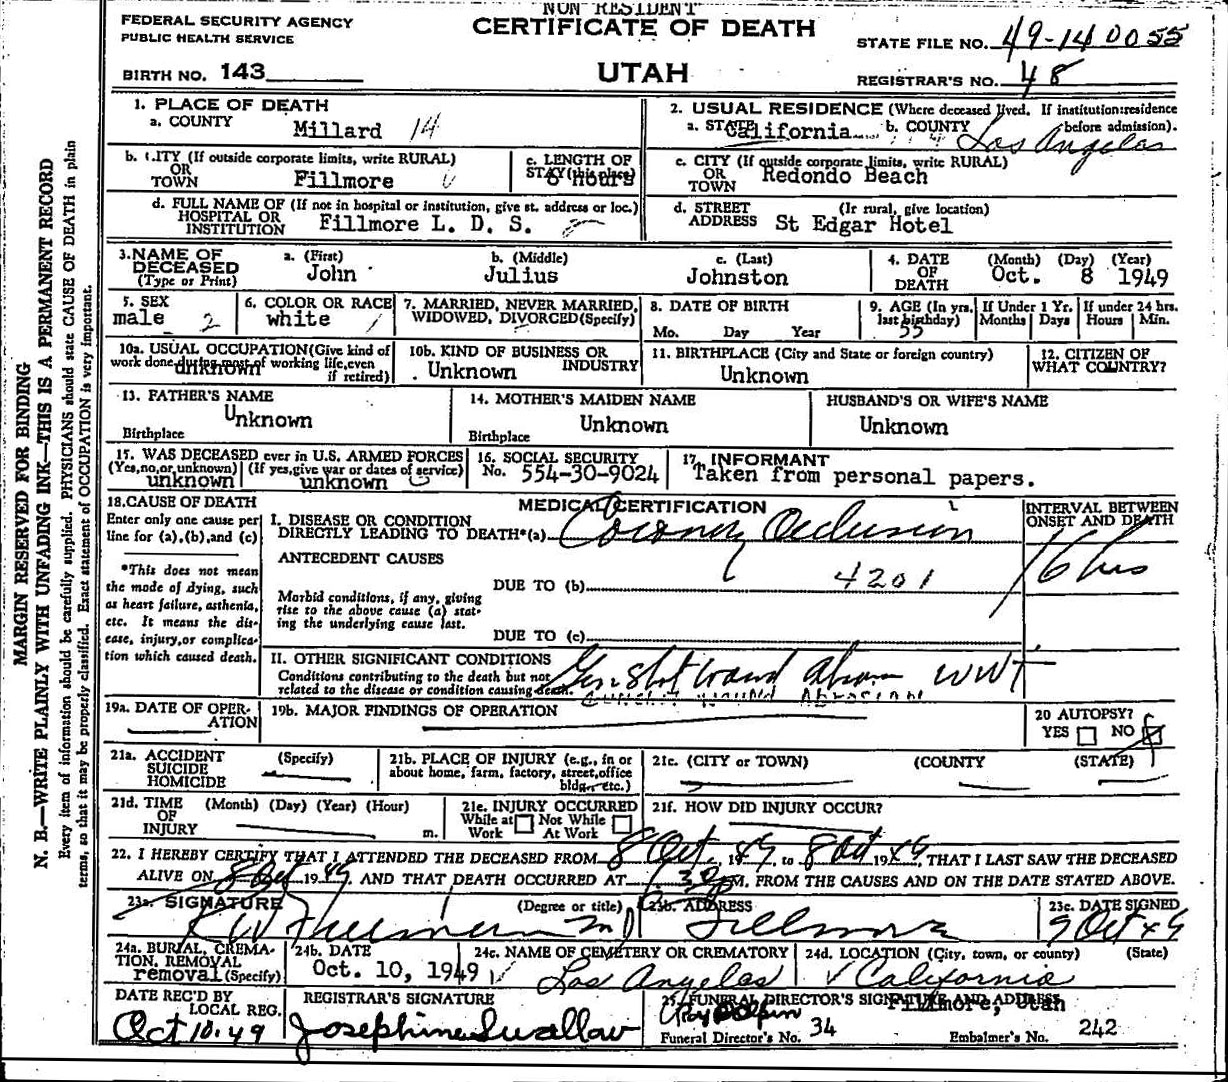 NON RESIDENT
FEDERAL SECURITY AGENCY
PUBLIC HEALTH SERVICE
CERTIFICATE OF DEATH
STATE FILE NO. 49-140055
BIRTH NO. 143
UTAH
REGISTRAR'S NO. 48
1. PLACE OF DEATH
a. COUNTY Millard 14
2. USUAL RESIDENCE (Where deceased lived. If institution:residence before admission).
a. STATE California b. COUNTY Los Angeles
b. CITY (If outside corporate limits, write RURAL)
OR
TOWN Fillmore
c. LENGTH OF
STAY (this place)
hours
c. CITY (If outside corporate limits, write RURAL)
OR
TOWN Redondo Beach
d. FULL NAME OF (If not in hospital or institution, give st. address or loc.)
HOSPITAL OR
INSTITUTION Fillmore L. D. S.
d. STREET (If rural, give location)
ADDRESS St Edgar Hotel
3. NAME OF
DECEASED
(Type or Print)
a. (First) b. (Middle) c. (Last)
John Julius Johnston
4. DATE
OF
DEATH
(Month) (Day) (Year)
Oct. 8 1949
5. SEX
male 2
6. COLOR OR RACE
white 1
7. MARRIED, NEVER MARRIED,
WIDOWED, DIVORCED (Specify)
8. DATE OF BIRTH
Mo. Day Year
9. AGE (In yrs.
last birthday)
55
If Under 1 Yr.
Months Days
If under 24 hrs.
Hours Min.
10a. USUAL OCCUPATION (Give kind of
work done during most of working life, even
if retired)
unknown
10b. KIND OF BUSINESS OR
INDUSTRY
Unknown
11. BIRTHPLACE (City and State or foreign country)
Unknown
12. CITIZEN OF
WHAT COUNTRY?
13. FATHER'S NAME
Unknown
Birthplace
14. MOTHER'S MAIDEN NAME
Unknown
Birthplace
HUSBAND'S OR WIFE'S NAME
Unknown
15. WAS DECEASED ever in U.S. ARMED FORCES
(Yes,no,or unknown) (If yes,give war or dates of service)
unknown unknown
16. SOCIAL SECURITY
No. 554-30-9024
17. INFORMANT
Taken from personal papers.
18. CAUSE OF DEATH
Enter only one cause per
line for (a),(b),and (c)
*This does not mean
the mode of dying, such
as heart failure, asthenia,
etc. It means the dis-
ease, injury,or complica-
tion which caused death.
MEDICAL CERTIFICATION
I. DISEASE OR CONDITION
DIRECTLY LEADING TO DEATH*(a) Coronary Occlusion
ANTECEDENT CAUSES
DUE TO (b) 4201
Morbid conditions, if any, giving
rise to the above cause (a) stat-
ing the underlying cause last.
DUE TO (c)
INTERVAL BETWEEN
ONSET AND DEATH
16 hrs
II. OTHER SIGNIFICANT CONDITIONS
Conditions contributing to the death but not
related to the disease or condition causing death.
Gun shot wound WWI
19a. DATE OF OPER-
ATION
19b. MAJOR FINDINGS OF OPERATION
20 AUTOPSY?
YES NO
21a. ACCIDENT (Specify)
SUICIDE
HOMICIDE
21b. PLACE OF INJURY (e.g., in or
about home, farm, factory, street,office
bldg., etc.)
21c. (CITY or TOWN) (COUNTY (STATE)
21d. TIME (Month) (Day) (Year) (Hour)
OF
INJURY m.
21e. INJURY OCCURRED
While at Not While
Work At Work
21f. HOW DID INJURY OCCUR?
22. I HEREBY CERTIFY THAT I ATTENDED THE DECEASED FROM 8 Oct. 1949 to 8 Oct 1949, THAT I LAST SAW THE DECEASED
ALIVE ON 8 Oct 1949 AND THAT DEATH OCCURRED AT M. FROM THE CAUSES AND ON THE DATE STATED ABOVE.
23a. SIGNATURE (Degree or title)
M D
23b. ADDRESS
Fillmore
23c. DATE SIGNED
9 Oct 49
24a. BURIAL, CREMA-
TION, REMOVAL
removal (Specify)
24b. DATE
Oct. 10, 1949
24c. NAME OF CEMETERY OR CREMATORY
Los Angeles
24d. LOCATION (City, town, or county) (State)
California
DATE REC'D BY
LOCAL REG.
Oct 10.49
REGISTRAR'S SIGNATURE
Josephine Swallow
25. FUNERAL DIRECTOR'S SIGNATURE AND ADDRESS
Fillmore, Utah
Funeral Director's No. 34 Embalmer's No. 242
MARGIN RESERVED FOR BINDING
N. B.—WRITE PLAINLY WITH UNFADING INK—THIS IS A PERMANENT RECORD
Every item of information should be carefully supplied. PHYSICIANS should state CAUSE OF DEATH in plain
terms, so that it may be properly classified. Exact statement of OCCUPATION is very important.